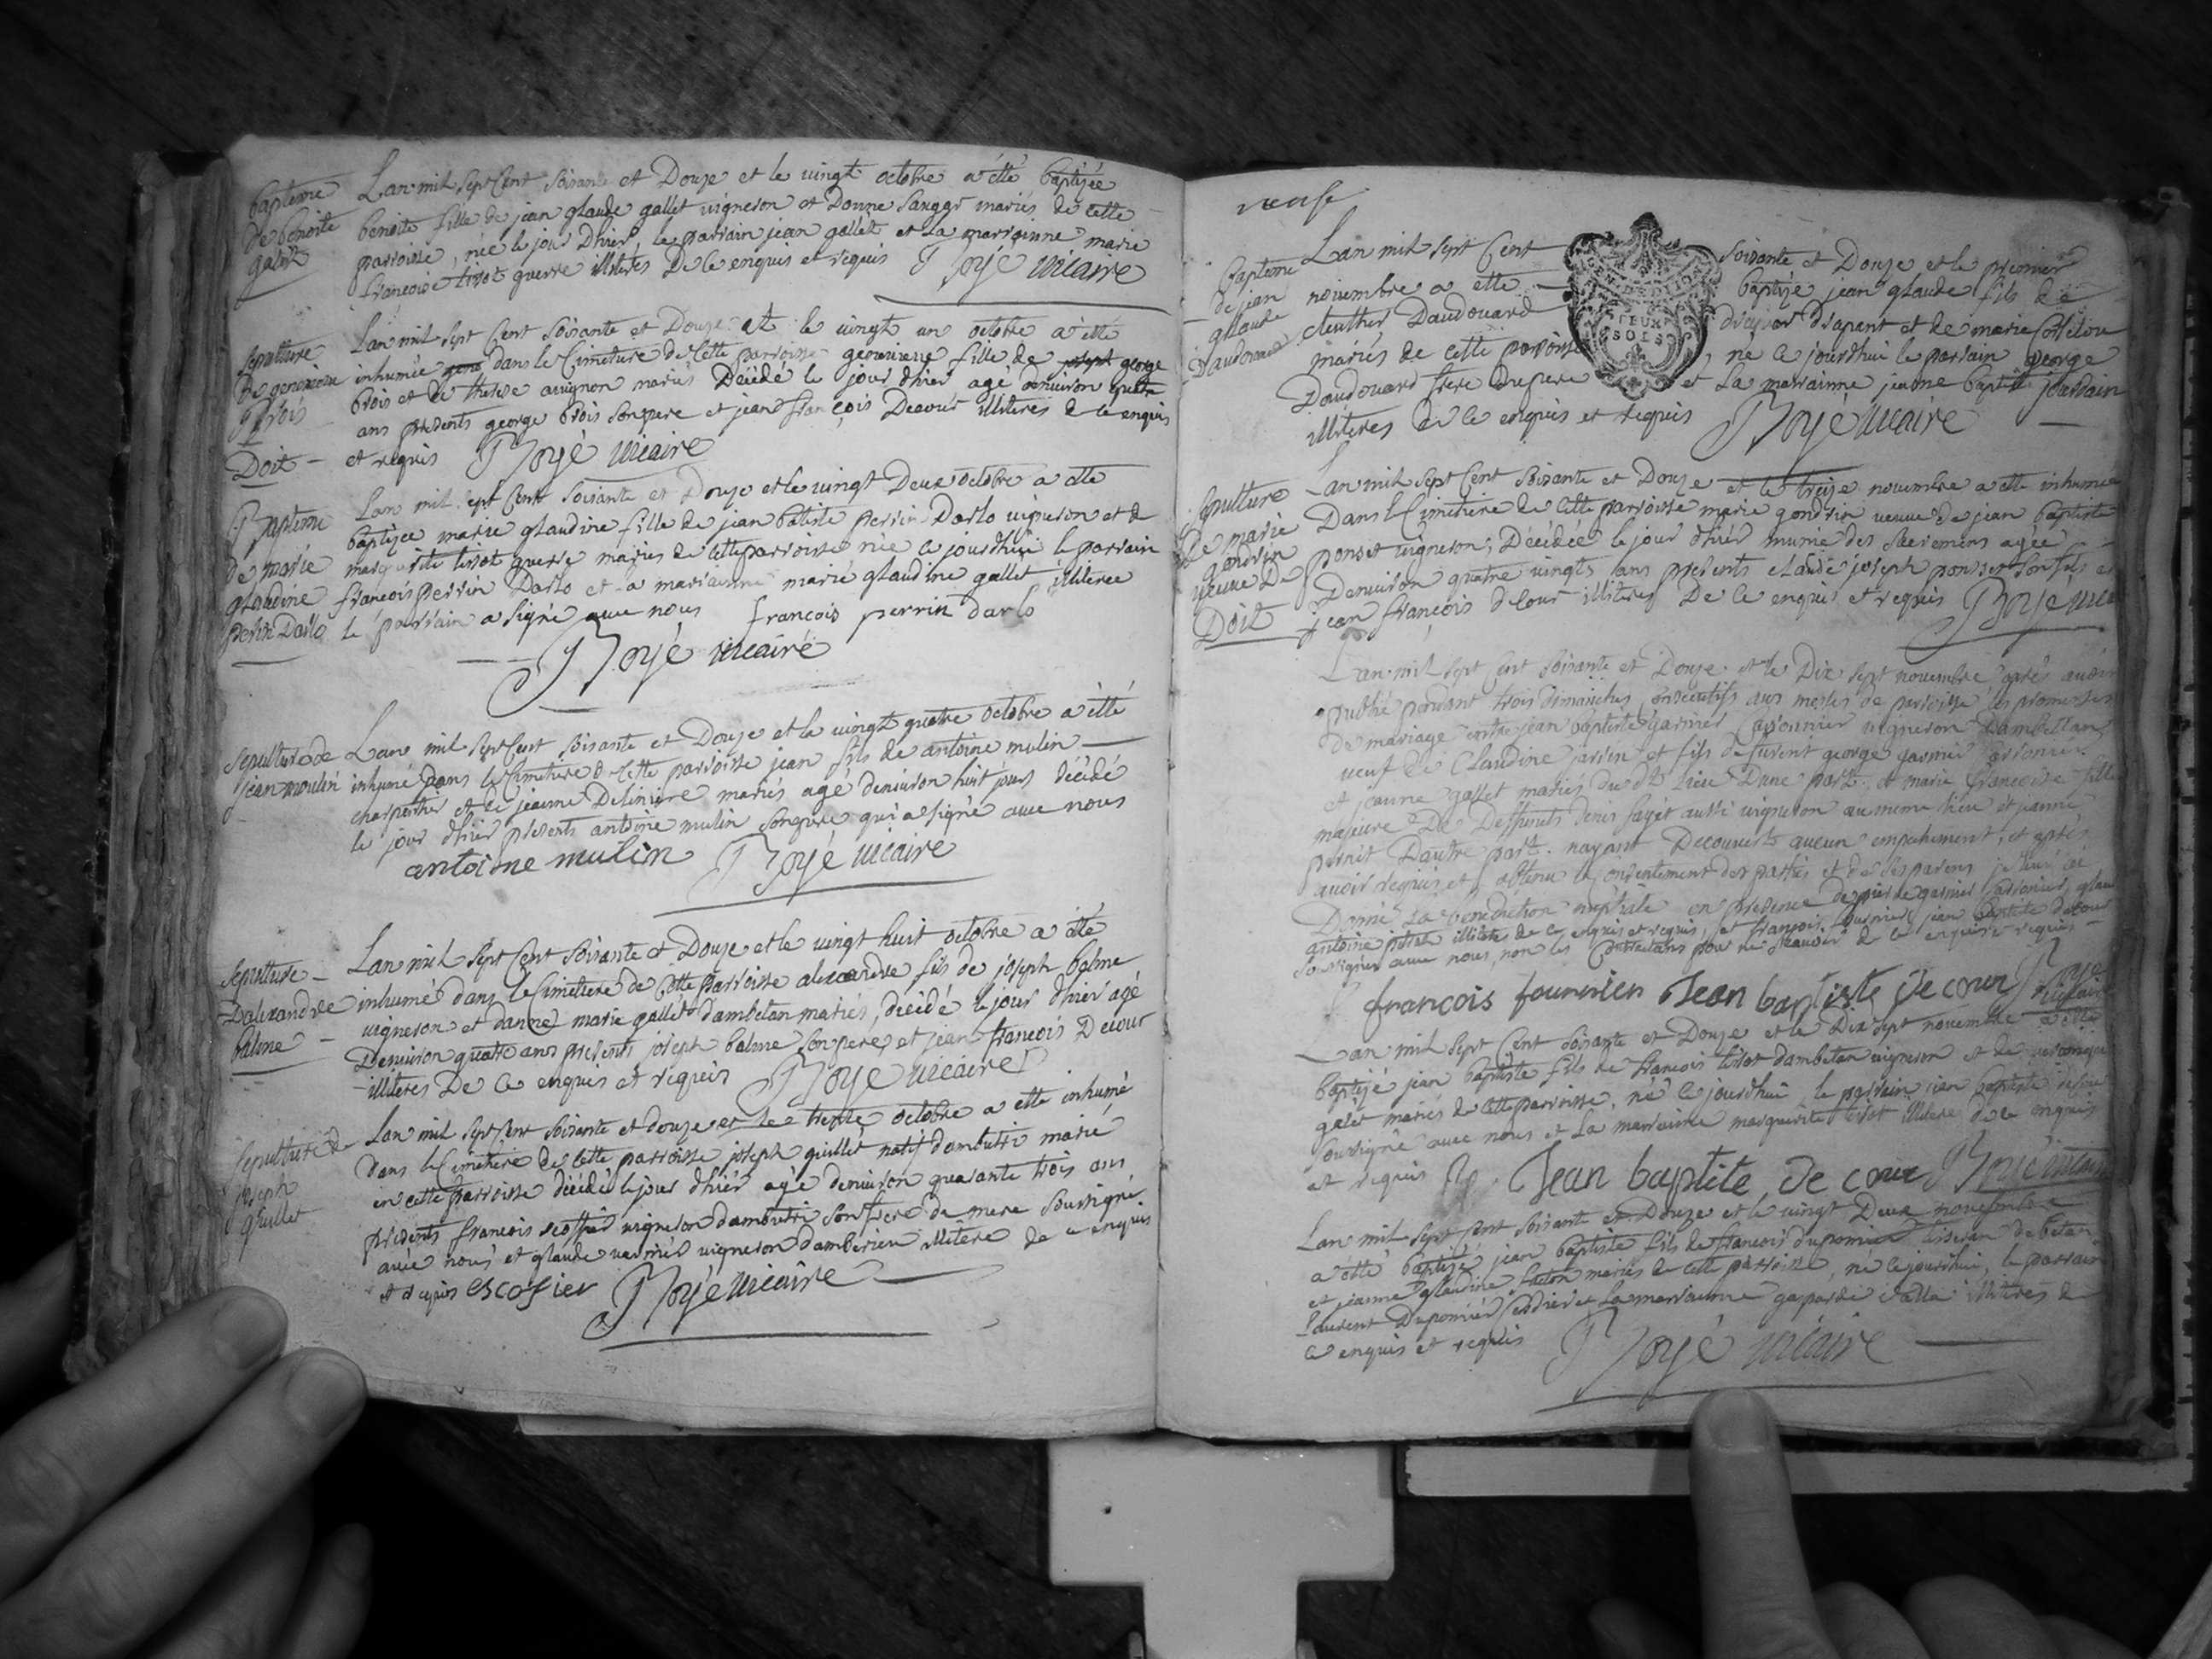 Bapteme
de benoite
galet
Lan mil sept Cent soixante et Douze et le vingt octobre a été baptizée
benoite fille de jean glaude gallet vigneron et Donne mariés de cette
parroisse, née le jour Dhier le parrain jean gallet et la marrainne marie
francoise tissot guerre illiterés De ce enquis et requis Boyé vicaire
Sepulture
de genevieve
brois
Doit
Lan mil sept Cent soixante et Douze et le vingt un octobre a été
inhumée dans le Cimetiere de cette parroisse genevieve fille de george
brois et de therese avignon mariés Décédé le jour dhier agé denviron quatre
ans presents george brois son pere et jean francois Decour illiteres de ce enquis
et requis Boyé vicaire
Bapteme
de marie
glaudine
perrin Darlo
Lan mil sept Cent soixante et Douze et le vingt Deux octobre a été
baptizée marie glaudine fille de jean batiste perrin Darlo vigneron et de
marguerite tissot guerre mariés de cette parroisse née ce jourdhui le parrain
francois perrin Darlo et la marrainne marie glaudine gallet illiteree
le parrain a signé avec nous francois perrin darlo
Boyé vicaire
Sepulture de
jean moulin
Lan mil sept Cent soixante et Douze et le vingt quatre octobre a été
inhumé dans le Cimetiere de cette parroisse jean fils de antoine mulin
charpentier et de jeanne Deliniere mariés agé denviron huit jours décédé
le jour dhier presents antoine mulin son pere qui a signé avec nous
antoine mulin Boyé vicaire
Sepulture
Dalexandre
balme
Lan mil sept Cent soixante et Douze et le vingt huit octobre a été
inhumé dans le Cimetiere de cette parroisse alexandre fils de joseph balme
vigneron et danne marie gallet dambetan mariés, décédé le jour dhier agé
Denviron quatre ans presents joseph balme son pere et jean francois Decour
illiteres De ce enquis et requis Boyé vicaire
Sepulture de
joseph
guillet
Lan mil sept Cent soixante et douze et le trente octobre a été inhumé
Dans le Cimetiere de cette parroisse joseph guillet natif dambutri marié
en cette parroisse décédé le jour dhier agé denviron quarante trois ans
presents francois vigneron dambutri son frere de mere soussigné
avec nous et glaude vigneron dambérieu illitere de ce enquis
et requis escofier Boyé vicaire
neuf
Bapteme
de jean
glaude
Daudouard
Lan mil sept Cent soixante et Douze et le premier
novembre a été baptizé jean glaude fils de
Daudouard et de marie
mariés de cette parroisse, né ce jourdhui le parrain george
Daudouard frere du pere et la marrainne jeanne baptiste jourdain
illiteres de ce enquis et requis Boyé vicaire
GENERALITE
DEUX
SOLS
Sepulture
de marie
gondrin
veuve de
Doit
Lan mil sept Cent soixante et Douze et le treize novembre a été inhumée
Dans le Cimetiere de cette parroisse marie gondrin veuve de jean baptiste
ponset vigneron; Décédée le jour dhier munie des sacremens agée
Denviron quatre vingts ans presents claude joseph ponset son fils et
jean francois decour illiteres De ce enquis et requis Boyé
Lan mil sept Cent soixante et Douze et le Dix sept novembre après avoir
publié pendant trois dimanches Consecutifs aux messes de parroisse les promesses
de mariage entre jean baptiste garnier vigneron Dambettan
veuf de Claudine et fils de furent george garnier
et jeanne gallet mariés du dt lieu Dune part et marie francoise fille
majeure De Deffunts Denis fayet aussi vigneron au meme lieu et jeanne
Dautre part. nayant Decouvert aucun empechement, et après
avoir requis et obtenu le Consentement des parties et de ses parens je leur ai
Donné la benediction nuptiale en presence de pierre garnier
antoine illiteres de ce enquis et requis, et francois fournier jean baptiste decour
soussignés avec nous, non les Contractans pour ne scavoir de ce enquis et requis
francois fournier Jean baptiste de cour Boyé
vicaire
Lan mil sept Cent soixante et Douze et le Dix sept novembre a été
baptizé jean baptiste fils de francois tissot dambetan vigneron et de veronique
galet mariés de cette parroisse, né ce jourdhui le parrain jean baptiste decour
soussigné avec nous et la marrainne marguerite tissot illitere de ce enquis
et requis Jean baptite de cour Boyé vicaire
Lan mil sept Cent soixante et Douze et le vingt Deux novembre
a été baptizé jean baptiste fils de francois duponier tisseran de betan
et jeanne glaudine mariés de cette parroisse, né ce jourdhui, le parrain
laurent Duponier et la marrainne gaparde illiteres de
ce enquis et requis Boyé vicaire